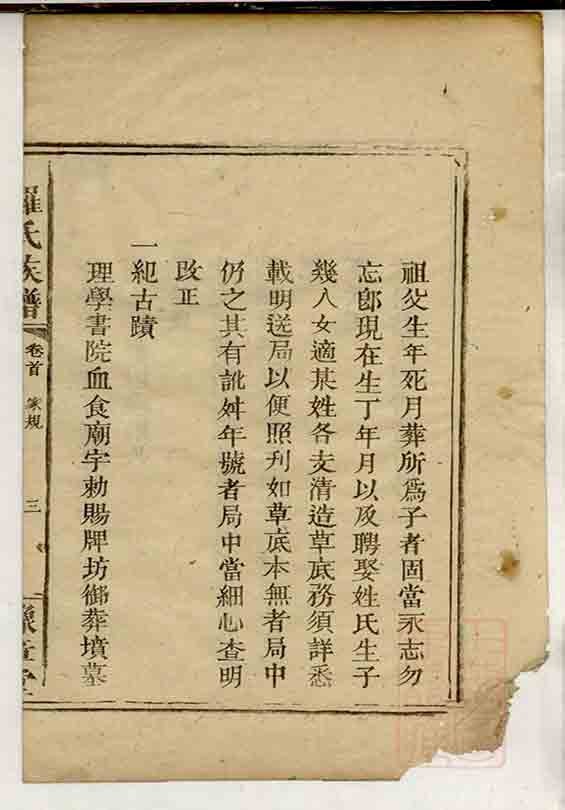 祖父生年死月葬所為子者固當永志勿
忘卽現在生丁年月以及聘娶姓氏生子
幾人女適某姓各支清造草底務須詳悉
載明送局以便照刋如草底本無者局中
仍之其有訛舛年號者局中當細心查明
改正
一紀古蹟
理學書院血食廟宇勅賜牌坊御葬墳墓
羅氏族譜
卷首
家規
三
豫章堂